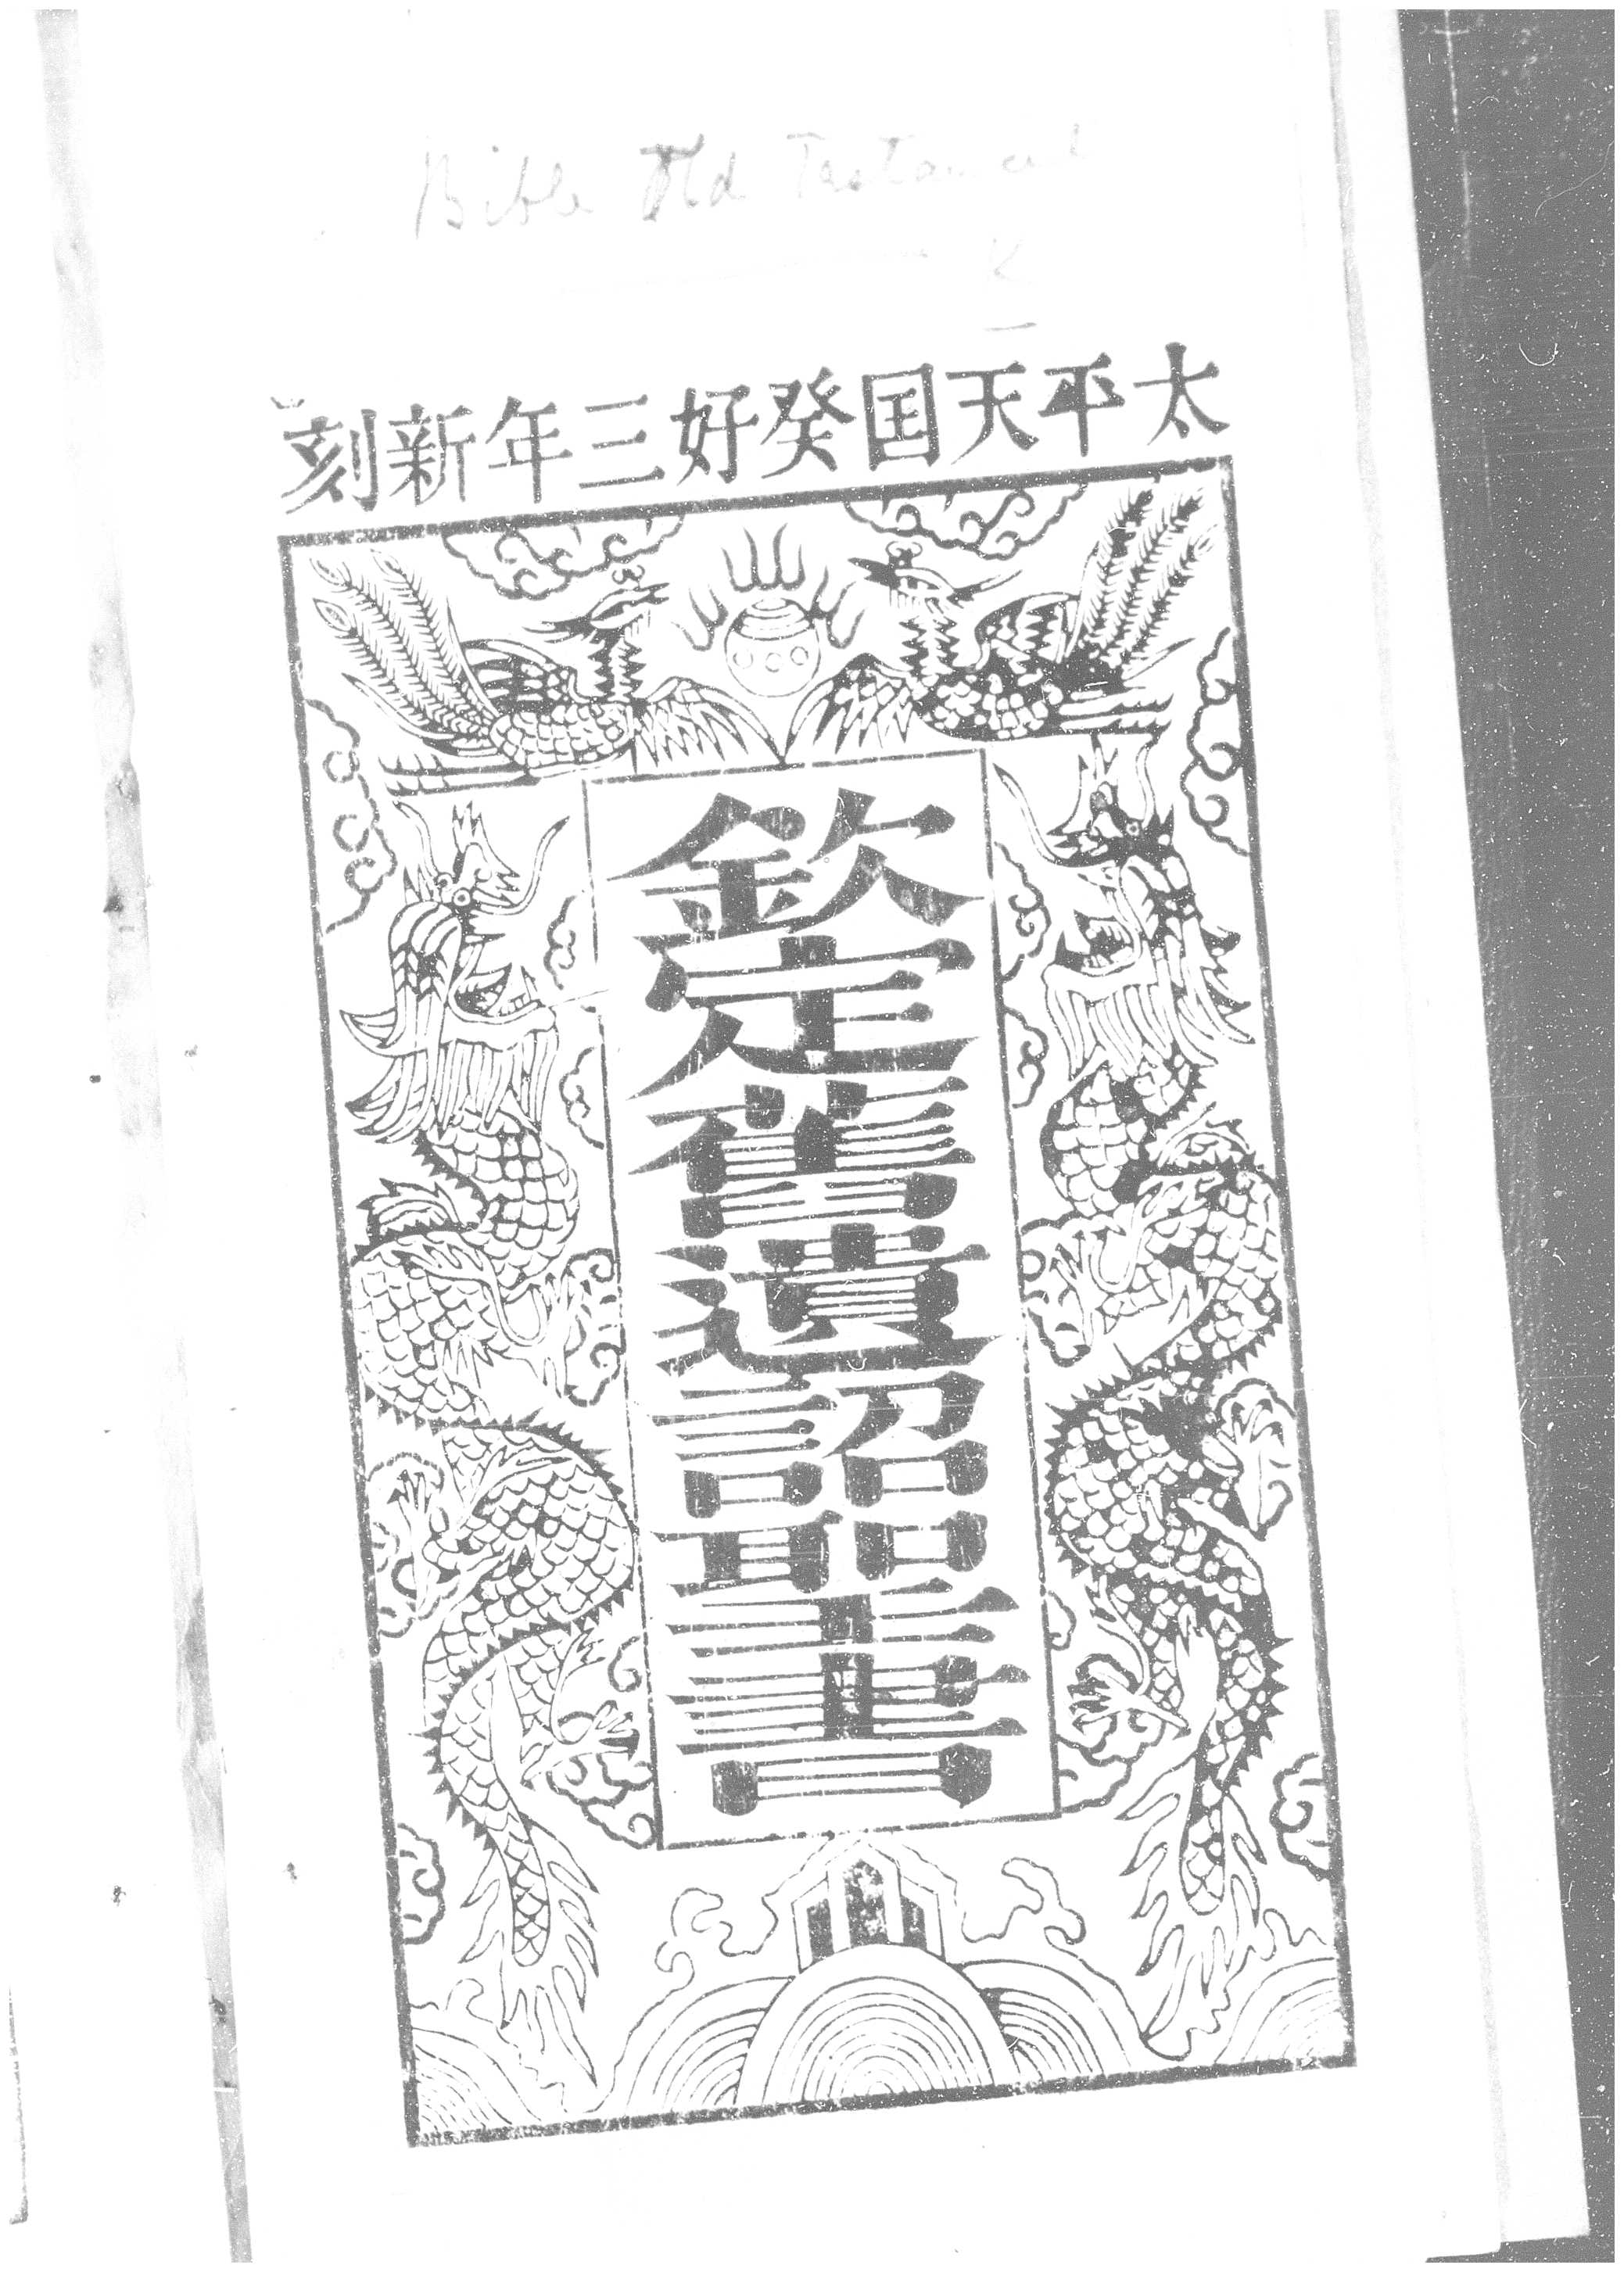 Bible Old Testament
2
太平天囯癸好三年新刻
欽定舊遺詔聖書